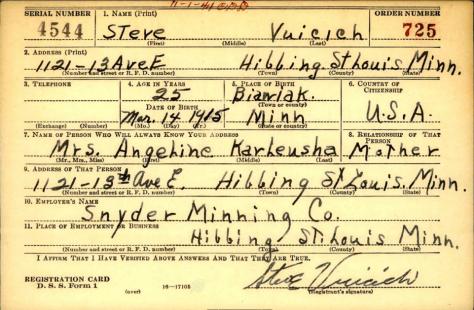 11-1-41 CPB
SERIAL NUMBER 1. NAME (Print) ORDER NUMBER
4544 Steve Vuicich 725
(First) (Middle) (Last)
2. ADDRESS (Print)
1121-13 Ave E Hibbing St Louis, Minn.
(Number and street or R. F. D. number) (Town) (County) (State)
3. TELEPHONE 4. AGE IN YEARS 5. PLACE OF BIRTH 6. COUNTRY OF CITIZENSHIP
25
DATE OF BIRTH (Town or county)
Mar. 14 1915 Minn U.S.A.
(Exchange) (Number) (Mo.) (Day) (Yr.) (State or country)
7. NAME OF PERSON WHO WILL ALWAYS KNOW YOUR ADDRESS 8. RELATIONSHIP OF THAT PERSON
Mrs. Angeline Karleusha Mother
(Mr., Mrs., Miss) (First) (Middle) (Last)
9. ADDRESS OF THAT PERSON
1121-13th Ave E. Hibbing St. Louis, Minn.
(Number and street or R. F. D. number) (Town) (County) (State)
10. EMPLOYER'S NAME
Snyder Minning Co.
11. PLACE OF EMPLOYMENT OR BUSINESS
Hibbing St. Louis Minn.
(Number and street or R. F. D. number) (Town) (County) (State)
I AFFIRM THAT I HAVE VERIFIED ABOVE ANSWERS AND THAT THEY ARE TRUE.
Steve Vuicich
REGISTRATION CARD
D. S. S. Form 1 (over) 16-17105 (Registrant's signature)